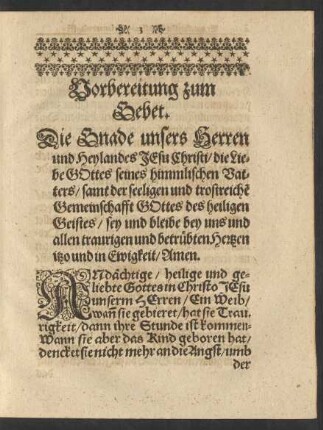 3
Vorbereitung zum
Gebet.
Die Gnade unsers Herren
und Heylandes JEsu Christi / die Lie-
be GOttes seines himmlischen Vat-
ters / samt der seeligen und trostreichẽ
Gemeinschafft GOttes des heiligen
Geistes / sey und bleibe bey uns und
allen traurigen und betrübten Hertzen
itzo und in Ewigkeit / Amen.
ANdächtige / heilige und ge-
liebte Gottes in Christo JEsu
unserm HErren / Ein Weib /
wañ sie gebieret / hat sie Trau-
rigkeit / dann ihre Stunde ist kommen.
Wann sie aber das Kind geboren hat /
dencket sie nicht mehr an die Angst / umb
der